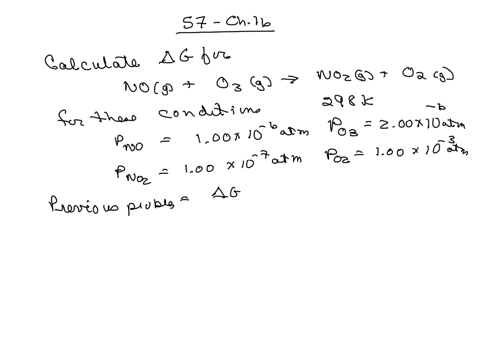 57 - Ch.16
Calculate ΔG for
NO(g) + O₃(g) → NO₂(g) + O₂(g)
for these conditions 298K
P_NO = 1.00 × 10⁻⁶ atm P_O3 = 2.00 × 10⁻⁶ atm
P_NO₂ = 1.00 × 10⁻⁷ atm P_O2 = 1.00 × 10⁻³ atm
Previous = ΔG